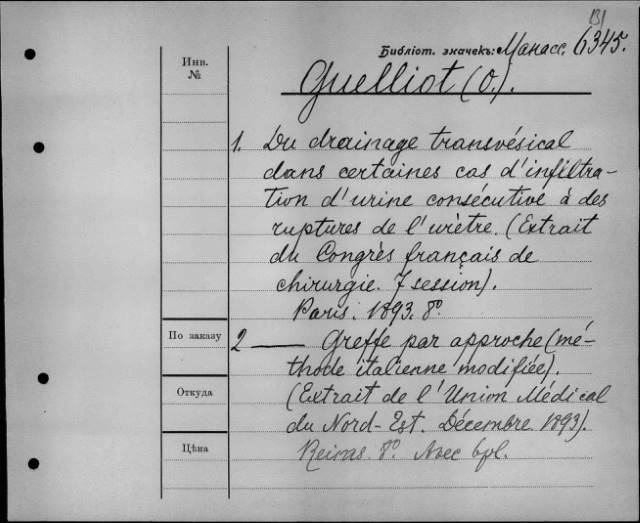 131
Библіот. значекъ: Манасс. 6345.
Инв.
№
Guelliot (O.).
1. Du drainage transvésical
dans certaines cas d'infiltra-
tion d'urine consécutive à des
ruptures de l'urètre. (Extrait
du Congrès français de
chirurgie. 7 session).
Paris. 1893. 8°.
По заказу
2 — Greffe par approche (mé-
thode italienne modifiée).
(Extrait de l'Union Médical
Откуда
du Nord-Est. Décembre 1893).
Цѣна
Reims. 8°. Avec 6pl.